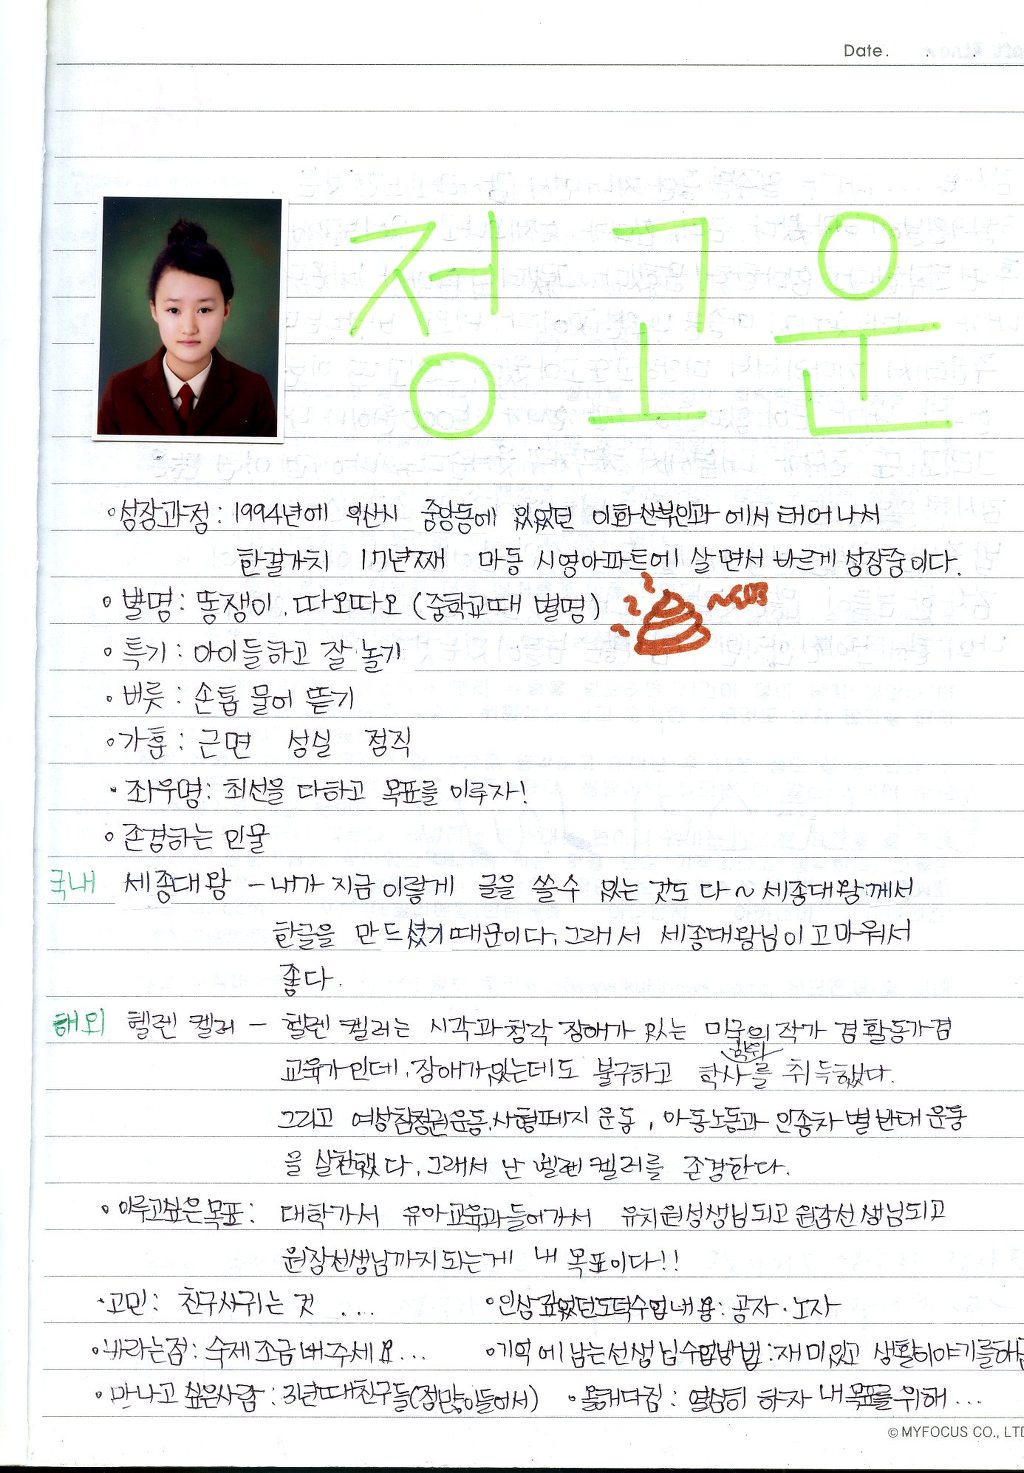 Date.
정고운
◦성장과정 : 1994년에 익산시 중앙동에 있었던 이화산부인과에서 태어나서
한결가치 17년째 마동 시영아파트에 살면서 바르게 성장중이다.
◦별명 : 똥쟁이, 따오따오 (중학교때 별명)
◦특기 : 아이들하고 잘 놀기
◦버릇 : 손톱 물어 뜯기
◦가훈 : 근면 성실 정직
◦좌우명 : 최선을 다하고 목표를 이루자!
◦존경하는 인물
국내 세종대왕 - 내가 지금 이렇게 글을 쓸수 있는 것도 다~ 세종대왕께서
한글을 만드셨기 때문이다. 그래서 세종대왕님이 고마워서
좋다.
해외 헬렌 켈러 - 헬렌 켈러는 시각과 청각 장애가 있는 미국의 작가 겸 활동가겸
교육가인데, 장애가 있는데도 불구하고 학사학위를 취득했다.
그리고 여성참정권운동, 사형폐지 운동, 아동노동과 인종차별 반대 운동
을 실천했다. 그래서 난 헬렌 켈러를 존경한다.
◦이루고싶은목표 : 대학가서 유아교육과들어가서 유치원선생님되고 원감선생님되고
원장선생님까지 되는게 내 목표이다!!
◦고민 : 친구사귀는 것 ... ◦인상깊었던도덕수업내용 : 공자·노자
◦바라는점 : 숙제조금내주세요... ◦기억에남는선생님수업방법 : 재미있고 생활이야기를하는
◦만나고 싶은사람 : 3년때친구들(정많이들어서) ◦올해다짐 : 열심히 하자 내 목표를 위해...
© MYFOCUS CO., LTD